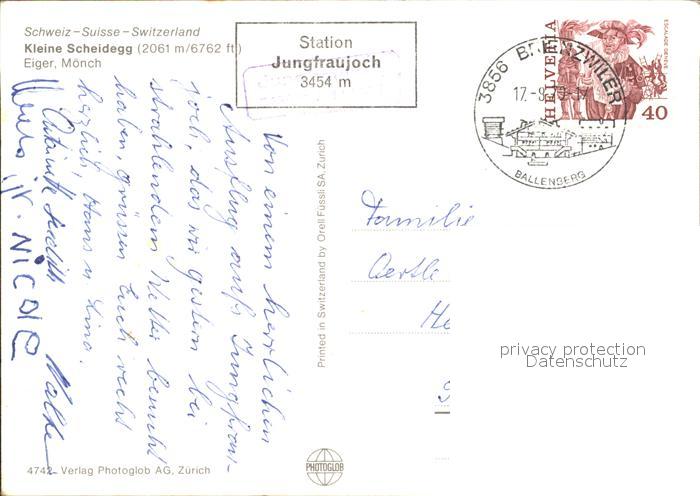 Schweiz – Suisse – Switzerland
Kleine Scheidegg (2061 m/6762 ft)
Eiger, Mönch
Station
Jungfraujoch
3454 m
3856 BRIENZWILER
17.-9.
BALLENBERG
HELVETIA
ESCALADE GENÈVE
40
Von einem herrlichen
Ausflug aufs Jungfrau-
joch, das wir gestern bei
strahlendem Wetter besucht
haben, grüssen Euch recht
herzlich Hans u. Lina.
NICOLE
Walter
Printed in Switzerland by Orell Füssli SA, Zürich
Familie
Oertli
He
privacy protection
Datenschutz
PHOTOGLOB
4742 Verlag Photoglob AG, Zürich